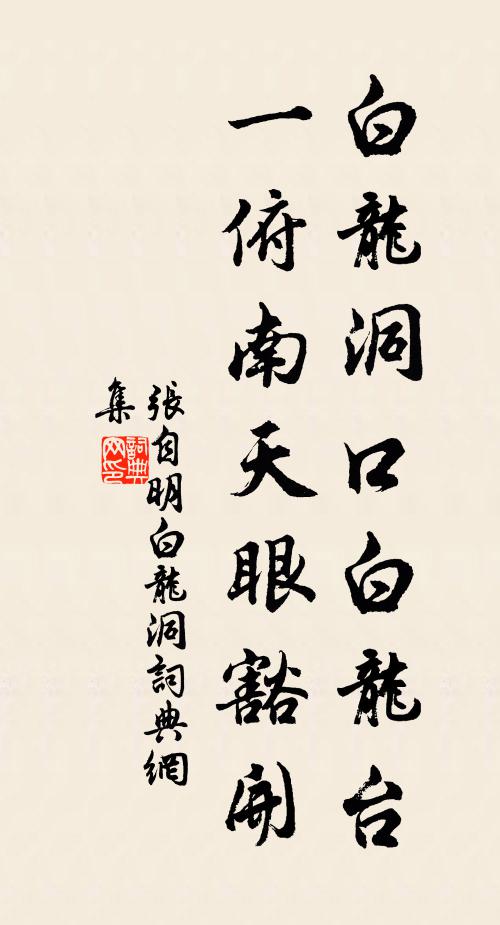 白龍洞口白龍台
一俯南天眼豁開
張自明白龍洞詞典網
集
詞典
网印